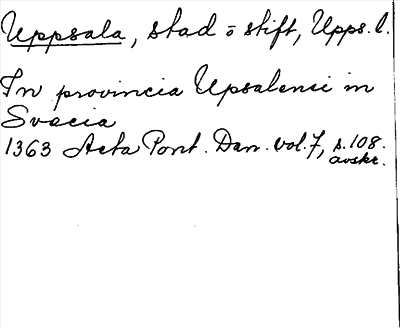 Uppsala, stad o stift, Upps. l.
In provincia Upsalensi in
Svecia
1363 Acta Pont. Dan. vol. 7, s. 108.
avskr.